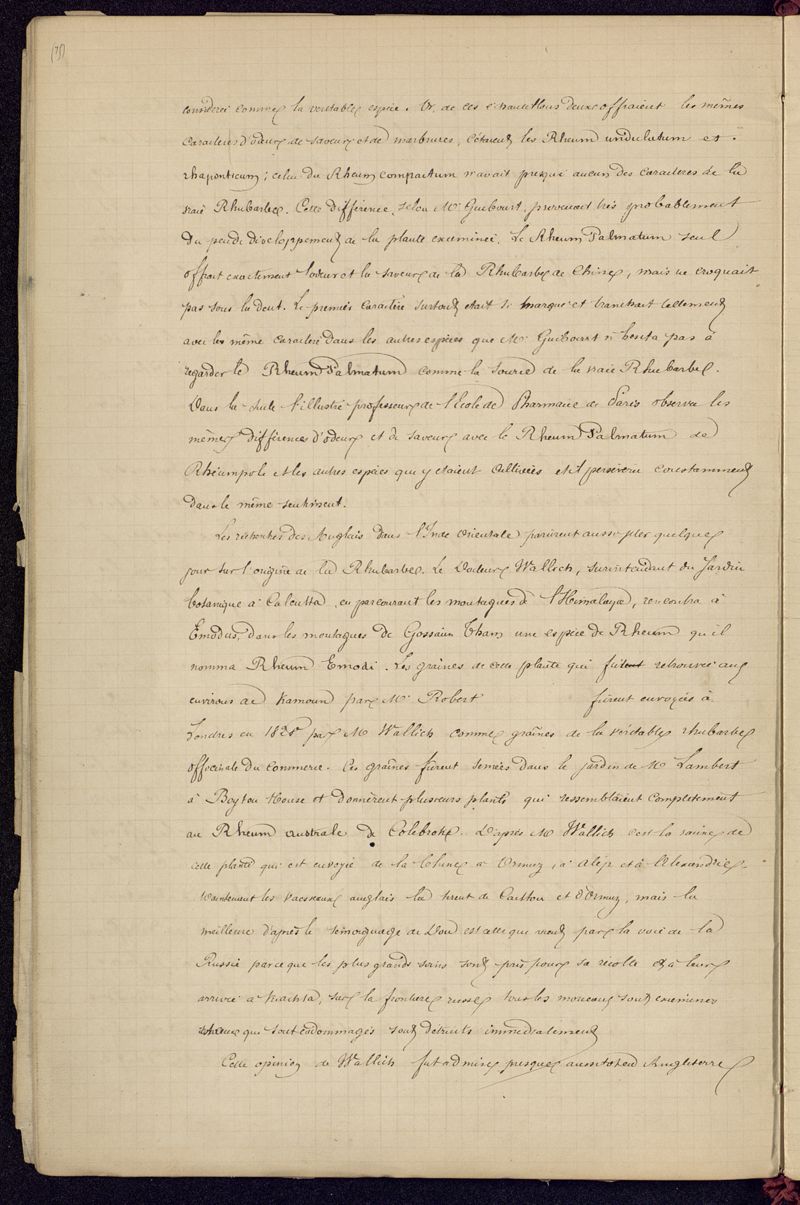 considerée comme la veritable espèce. Or, de ces échantillons deux offraient les mêmes
caractères d'odeur de saveur et de marbrures, c'étaient les Rheum undulutum et
rhaponticum; celui du Rheum compactum n'avait presque aucun des caractères de la
vraie Rhubarbe. Cette différence, selon Mr Guibourt, provenait très probablement
du peu de développement de la plante examinée. Le Rheum Palmatum seul
offrait exactement l'odeur et la saveur de la Rhubarbe de Chine, mais ne croquait
pas sous la dent. Le premier caractère surtout était si marqué et tranchait tellement
avec le même caractère dans les autres espèces que Mr Guibourt n'hésita pas à
regarder le Rheum Palmatum comme la source de la vraie Rhubarbe.
Dans la suite l'illustre professeur de l'Ecole de Pharmacie de Paris observa les
mêmes différences d'odeur et de saveur avec le Rheum Palmatum de
Rhéumpole et les autres espèces qui y étaient cultivées et il persevera constamment
dans le même sentiment.
Les recherches des Anglais dans l'Inde Orientale parurent aussi jeter quelque
jour sur l'origine de la Rhubarbe. Le Docteur Wallich, surintendant du Jardin
botanique à Calcutta, en parcourant les montagnes de l'Himalaya, rencontra à
Emodus, dans les montagnes de Gossain Than une espèce de Rheum qu'il
nomma Rheum Emodi. Les graines de cette plante qui furent retrouvée aux
environs de Kamoun par Mr Robert furent envoyées à
Londres en par Mr Wallich comme graines de la véritable rhubarbe
officinale du commerce. Ces graines furent semées dans le jardin de Mr Lambert
à Boyton House et donnèrent plusieurs plants qui ressemblaient complètement
au Rheum australe de Colebroke. D'après Mr Wallich c'est la racine de
cette plante qui est envoyée de la Chine à Ormuz, à Alep et à Alexandrie.
Maintenant les vaisseaux anglais la tirent de Canton et d'Ormuz, mais la
meilleure d'après le témoignage de Don est celle qui vient par la voie de la
Russie parce que les plus grands soins sont pris pour sa récolte et à leur
arrivée à Kiachta, sur la frontière russe tous les morceaux sont examinés
et ceux qui sont endommagés sont détruits immédiatement
Cette opinion de Wallich fut admise presque aussitôt en Angleterre